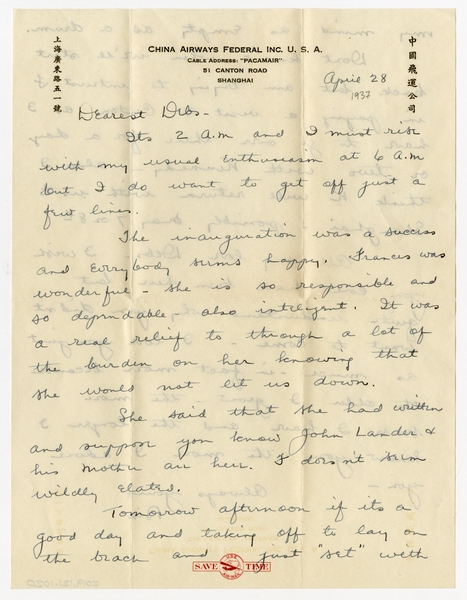 CHINA AIRWAYS FEDERAL INC. U. S. A.
CABLE ADDRESS: "PACAMAIR"
51 CANTON ROAD
SHANGHAI
上海廣東路五一號
中國飛運公司
April 28
1937
Dearest Debs-
Its 2 A.M and I must rise
with my usual enthusiasm at 6 A.M
but I do want to get off just a
few lines.
The inauguration was a success
and Everybody seems happy. Francis was
wonderful - she is so responsible and
so dependable - also inteligent. It was
a real relief to through a lot of
the burden on her knowing that
she would not let us down.
She said that she had written
and suppose you know John Lander &
his Mother are here. I doesn't seem
wildly elated.
Tomorrow afternoon if its a
good day and taking off to lay on
the beach and just "set" with
SAVE TIME
USE AIR MAIL